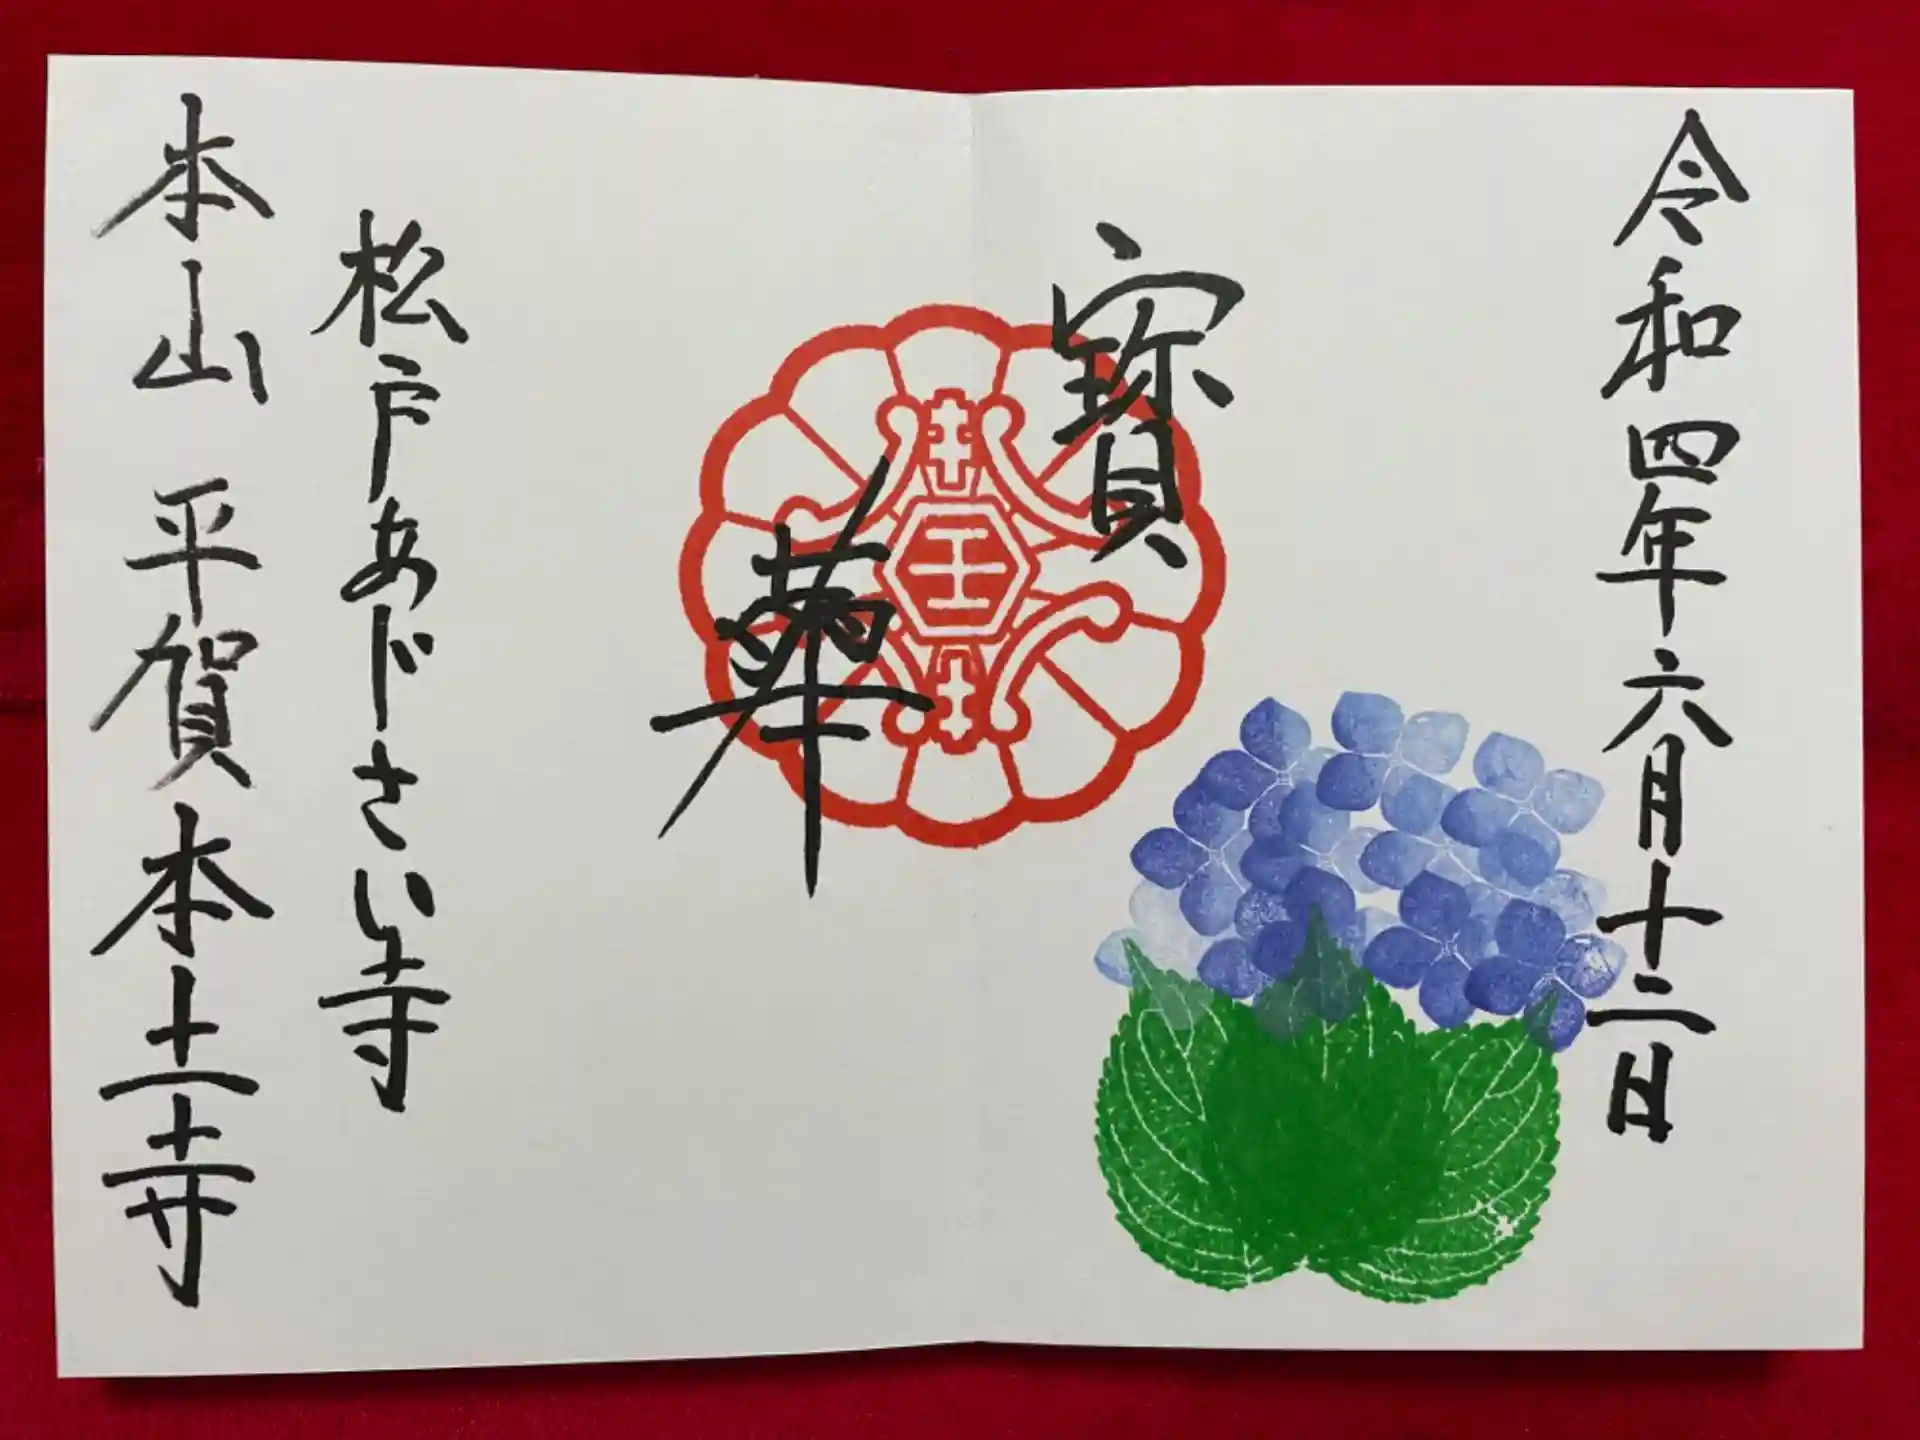 令和四年六月十二日
寶
華
松戸あじさい寺
本山 平賀本土寺